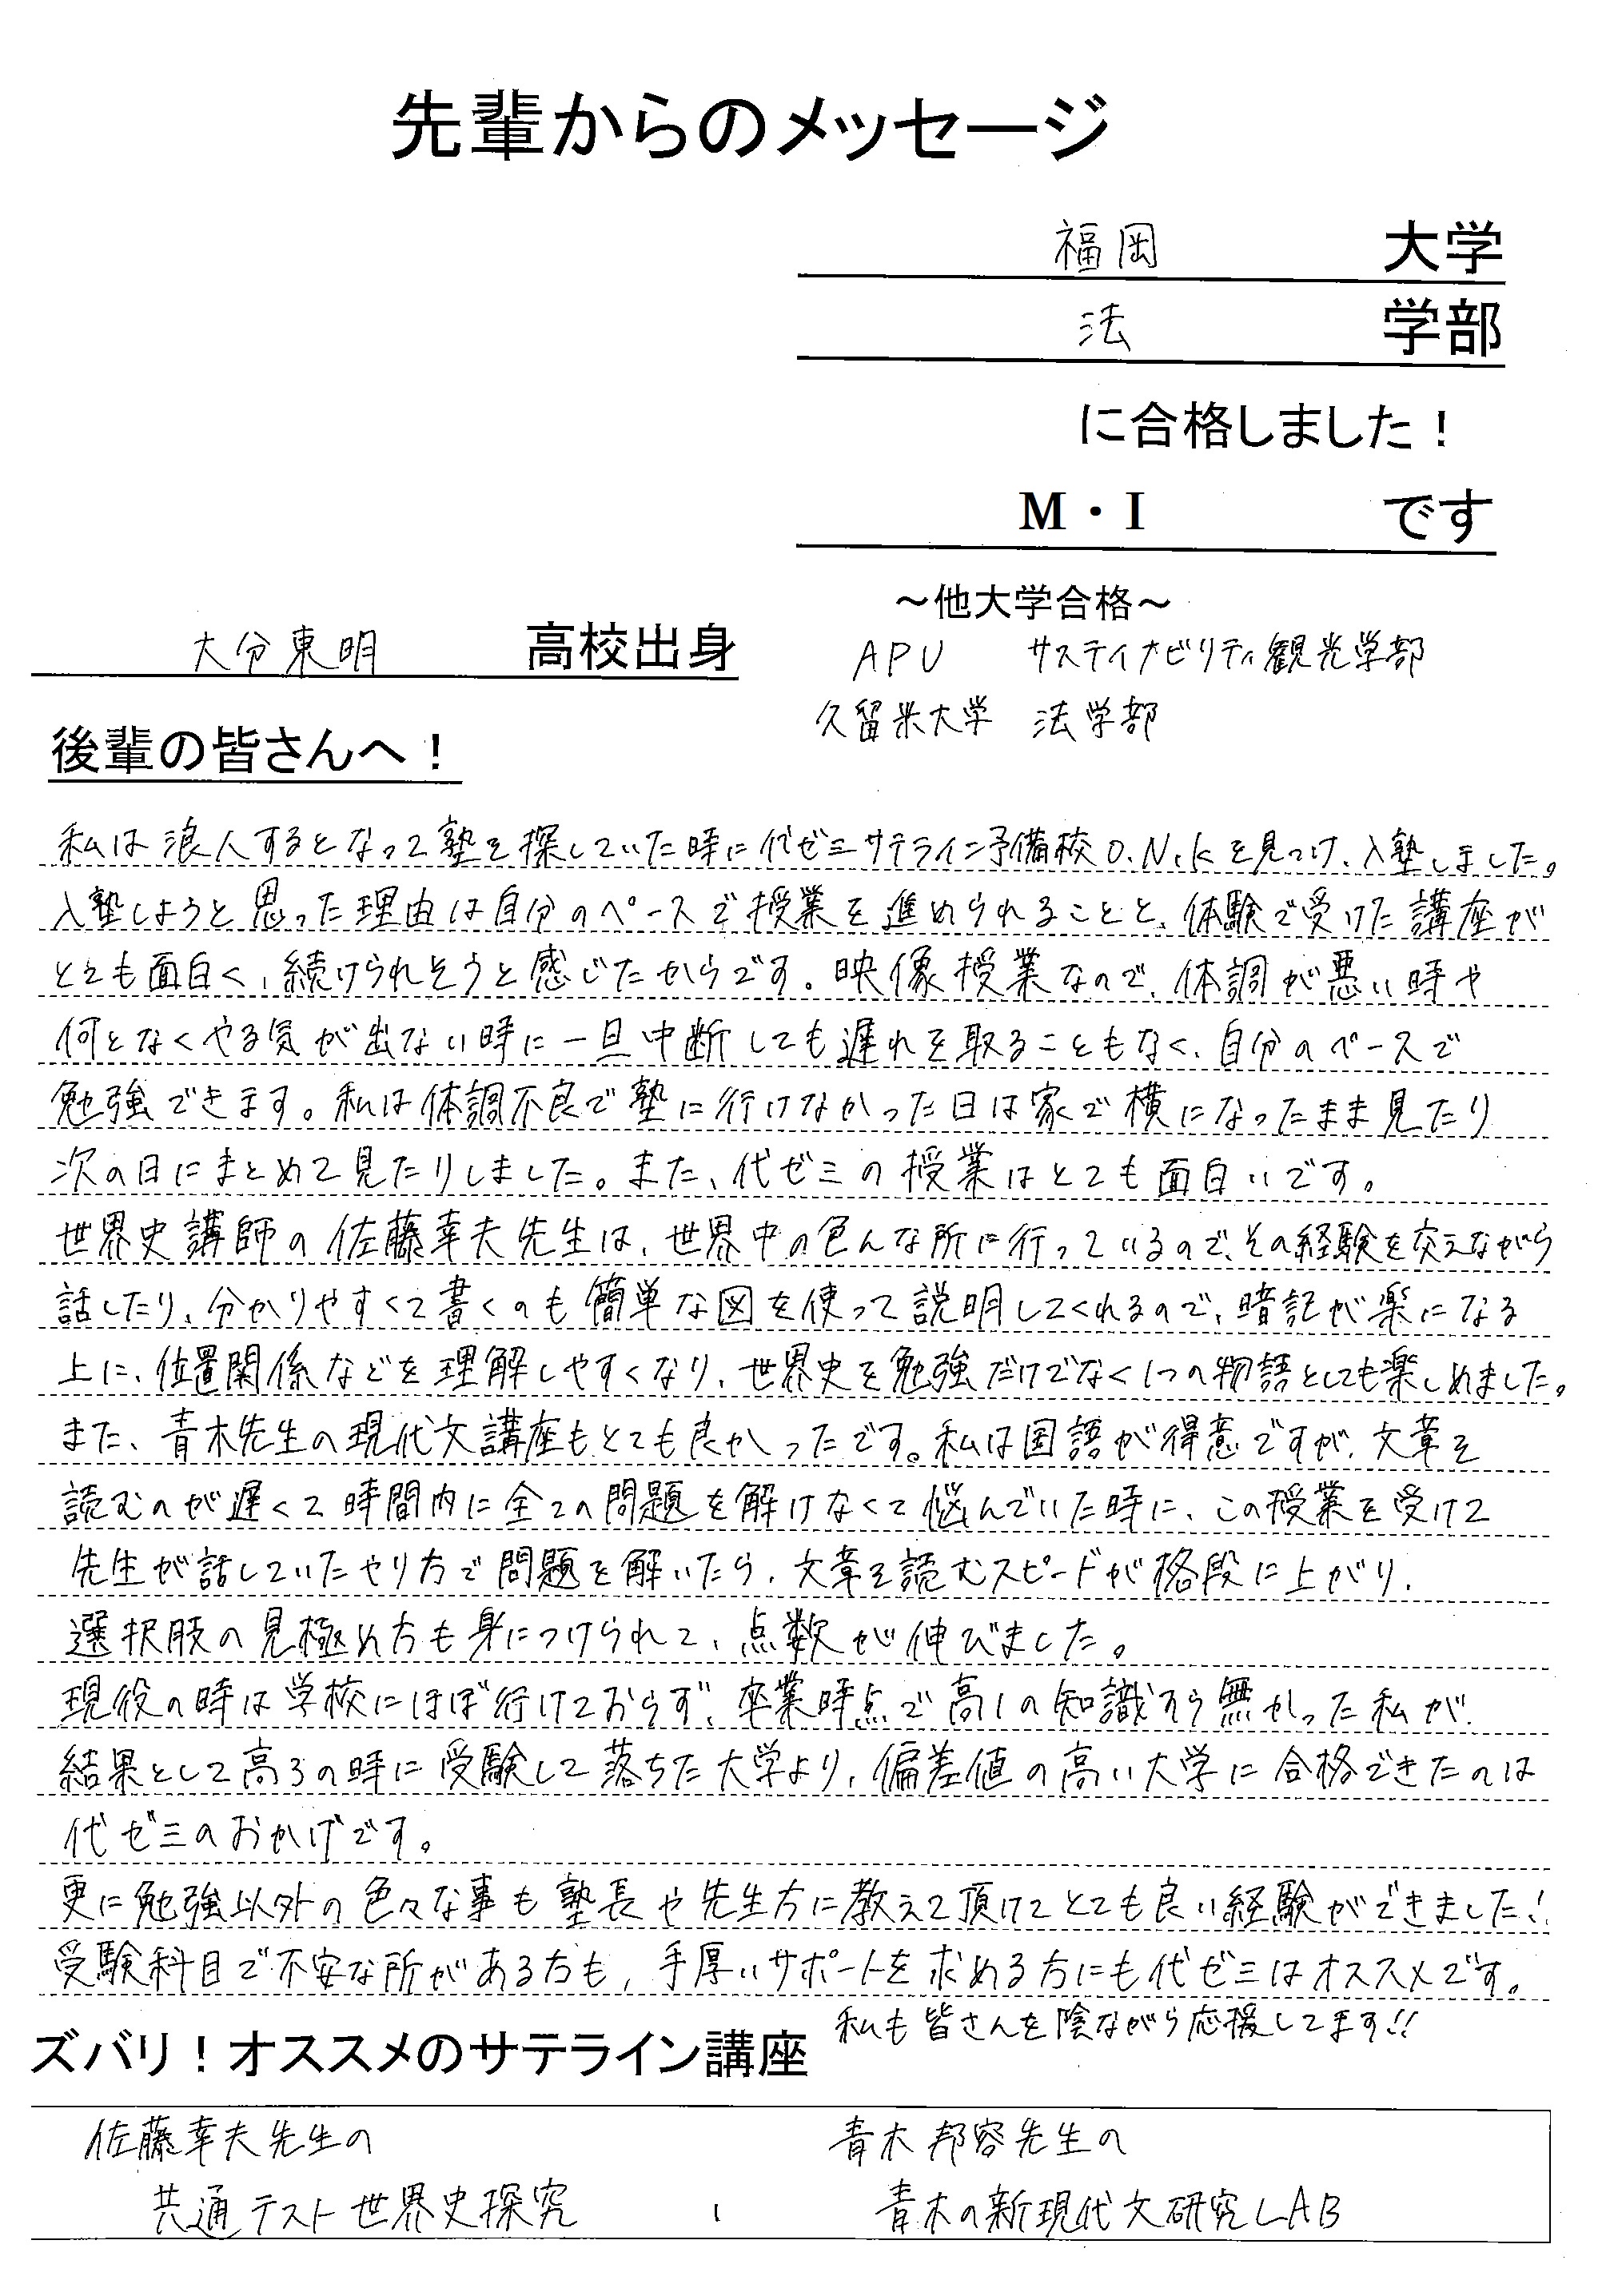 先輩からのメッセージ
福岡 大学
法 学部
に合格しました！
M・I です
～他大学合格～
大分東明 高校出身
APU サステイナビリティ観光学部
久留米大学 法学部
後輩の皆さんへ！
私は浪人するとなって塾を探していた時に代ゼミサテライン予備校O.N.Kを見つけ、入塾しました。
入塾しようと思った理由は自分のペースで授業を進められることと、体験で受けた講座が
とても面白く、続けられそうと感じたからです。映像授業なので、体調が悪い時や
何となくやる気が出ない時に一旦中断しても遅れを取ることもなく、自分のペースで
勉強できます。私は体調不良で塾に行けなかった日は家で横になったまま見たり
次の日にまとめて見たりしました。また、代ゼミの授業はとても面白いです。
世界史講師の佐藤幸夫先生は、世界中の色んな所に行っているので、その経験を交えながら
話したり、分かりやすくて書くのも簡単な図を使って説明してくれるので、暗記が楽になる
上に、位置関係などを理解しやすくなり、世界史を勉強だけでなく1つの物語としても楽しめました。
また、青木先生の現代文講座もとても良かったです。私は国語が得意ですが、文章を
読むのが遅くて時間内に全ての問題を解けなくて悩んでいた時に、この授業を受けて
先生が話していたやり方で問題を解いたら、文章を読むスピードが格段に上がり、
選択肢の見極め方も身につけられて、点数が伸びました。
現役の時は学校にほぼ行けておらず、卒業時点で高1の知識すら無かった私が、
結果として高3の時に受験して落ちた大学より、偏差値の高い大学に合格できたのは
代ゼミのおかげです。
更に勉強以外の色々な事も塾長や先生方に教えて頂けてとても良い経験ができました！
受験科目で不安な所がある方も、手厚いサポートを求める方にも代ゼミはオススメです。
私も皆さんを陰ながら応援してます!!
ズバリ！オススメのサテライン講座
佐藤幸夫先生の 青木邦容先生の
共通テスト世界史探究 、 青木の新現代文研究LAB